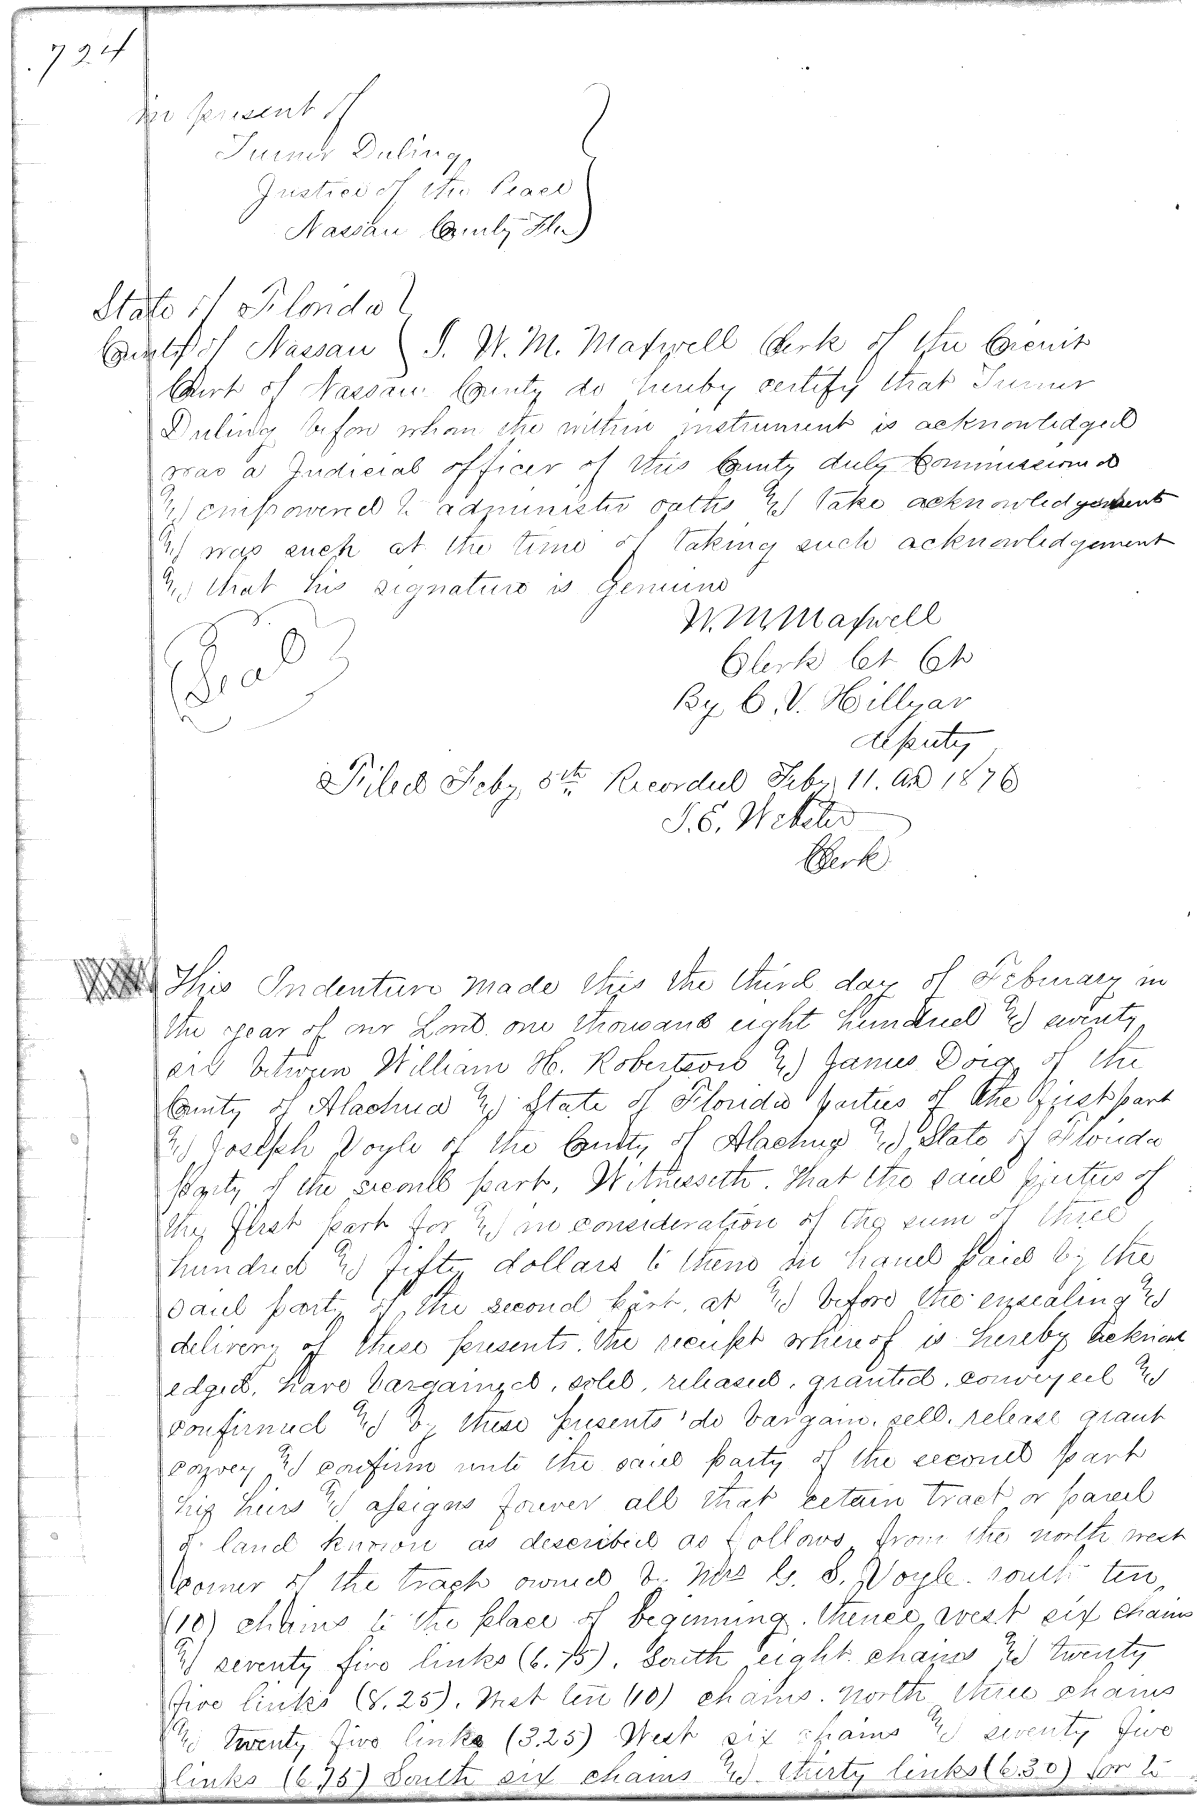 724
in present of
Turner Duling,
Justice of the Peace
Nassau County Fla
State of Florida
County of Nassau } I. W. M. Maxwell Clerk of the Circuit
Court of Nassau County do hereby certify that Turner
Duling before whom the within instrument is acknowledged
was a Judicial officer of this County duly Commissioned
& empowered to administer oaths & take acknowledgement
& was such at the time of taking such acknowledgement
& that his signature is genuine
W. M. Maxwell
(Seal)
Clerk Ct Ct
By C. V. Hillyar
deputy
Filed Feby 5th Recorded Feby 11. AD 1876
J. E. Webster
Clerk
This Indenture made this the third day of February in
the year of our Lord one thousand eight hundred & seventy
six between William H. Robertson & James Doig of the
County of Alachua & State of Florida parties of the first part
& Joseph Voyle of the County of Alachua & State of Florida
party of the second part, Witnesseth. That the said parties of
the first part for & in consideration of the sum of three
hundred & fifty dollars to them in hand paid by the
said party of the second part, at & before the ensealing &
delivery of these presents. the receipt whereof is hereby acknowl
edged, have bargained, sold, released, granted, conveyed &
confirmed & by these presents do bargain, sell, release grant
convey & confirm unto the said party of the second part
his heirs & assigns forever all that cetain tract or parcel
of land known as described as follows, from the north west
corner of the tract owned by Mrs G. S. Voyle. south ten
(10) chains to the place of beginning. thence west six chains
& seventy five links (6.75). South eight chains & twenty
five links (8.25). West ten (10) chains. North three chains
& twenty five links (3.25) West six chains & seventy five
links (6.75) South six chains & thirty links (6.30) for to